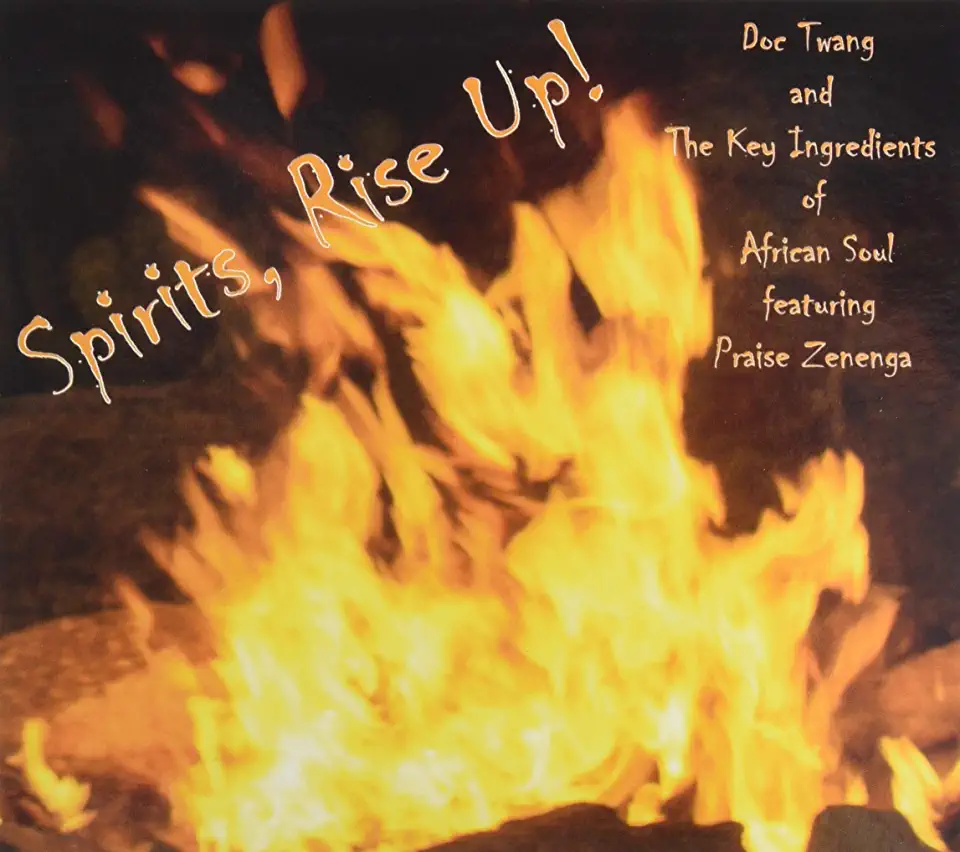 Spirits, Rise Up!
Doc Twang
and
The Key Ingredients
of
African Soul
featuring
Praise Zenenga